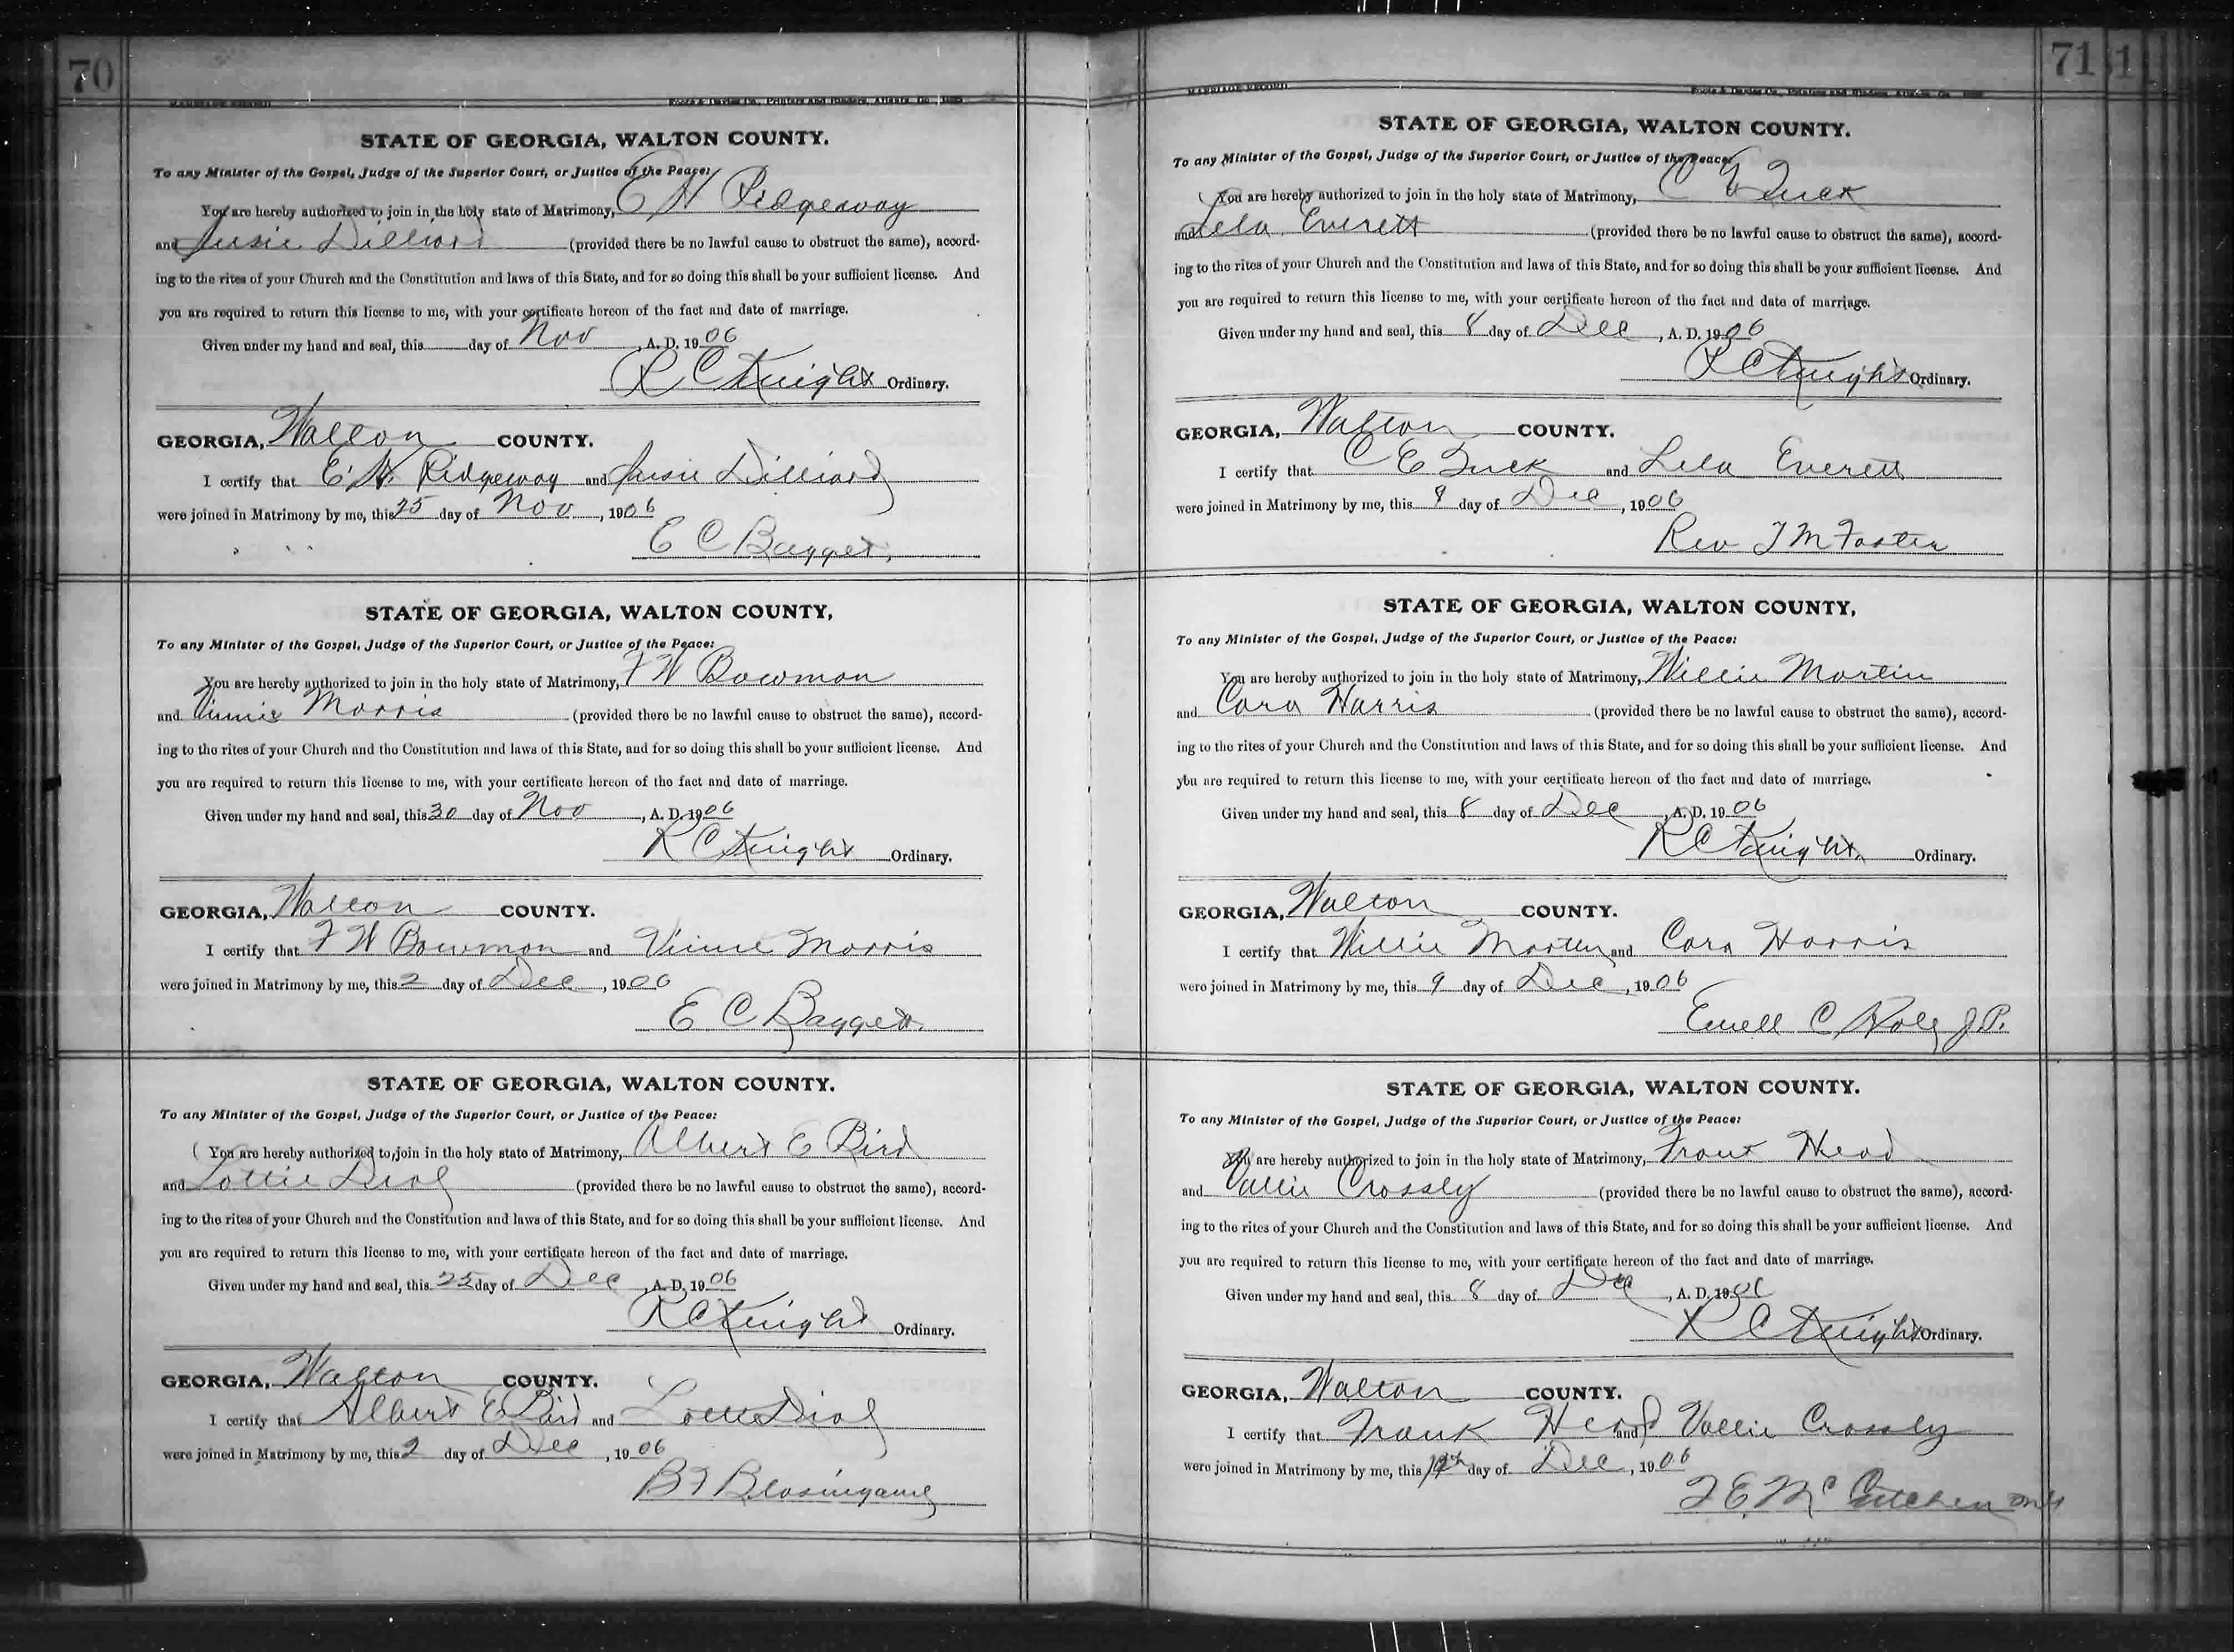 70
MARRIAGE RECORD
Foote & Davies Co., Printers and Binders, Atlanta, Ga.
STATE OF GEORGIA, WALTON COUNTY.
To any Minister of the Gospel, Judge of the Superior Court, or Justice of the Peace:
You are hereby authorized to join in the holy state of Matrimony, E H Ridgeway
and Susie Dilliard (provided there be no lawful cause to obstruct the same), accord-
ing to the rites of your Church and the Constitution and laws of this State, and for so doing this shall be your sufficient license. And
you are required to return this license to me, with your certificate hereon of the fact and date of marriage.
Given under my hand and seal, this day of Nov, A. D. 1906
R C Knight Ordinary.
GEORGIA, Walton COUNTY.
I certify that E. H. Ridgeway and Susie Dilliard
were joined in Matrimony by me, this 25 day of Nov, 1906
E C Bagget,
STATE OF GEORGIA, WALTON COUNTY,
To any Minister of the Gospel, Judge of the Superior Court, or Justice of the Peace:
You are hereby authorized to join in the holy state of Matrimony, F W Bowman
and Vinnie Morris (provided there be no lawful cause to obstruct the same), accord-
ing to the rites of your Church and the Constitution and laws of this State, and for so doing this shall be your sufficient license. And
you are required to return this license to me, with your certificate hereon of the fact and date of marriage.
Given under my hand and seal, this 30 day of Nov, A. D. 1906
R C Knight Ordinary.
GEORGIA, Walton COUNTY.
I certify that F W Bowman and Vinnie Morris
were joined in Matrimony by me, this 2 day of Dec, 1906
E C Baggett.
STATE OF GEORGIA, WALTON COUNTY.
To any Minister of the Gospel, Judge of the Superior Court, or Justice of the Peace:
You are hereby authorized to join in the holy state of Matrimony, Albert E Bird
and Lottie Dial (provided there be no lawful cause to obstruct the same), accord-
ing to the rites of your Church and the Constitution and laws of this State, and for so doing this shall be your sufficient license. And
you are required to return this license to me, with your certificate hereon of the fact and date of marriage.
Given under my hand and seal, this 25 day of Dec, A. D. 1906
R C Knight Ordinary.
GEORGIA, Walton COUNTY.
I certify that Albert E Bird and Lottie Dial
were joined in Matrimony by me, this 2 day of Dec, 1906
B F Blasingame
71
MARRIAGE RECORD
Foote & Davies Co., Printers and Binders, Atlanta, Ga.
STATE OF GEORGIA, WALTON COUNTY.
To any Minister of the Gospel, Judge of the Superior Court, or Justice of the Peace:
You are hereby authorized to join in the holy state of Matrimony, C E Tuck
and Lela Everett (provided there be no lawful cause to obstruct the same), accord-
ing to the rites of your Church and the Constitution and laws of this State, and for so doing this shall be your sufficient license. And
you are required to return this license to me, with your certificate hereon of the fact and date of marriage.
Given under my hand and seal, this 8 day of Dec, A. D. 1906
R C Knight Ordinary.
GEORGIA, Walton COUNTY.
I certify that C E Tuck and Lela Everett
were joined in Matrimony by me, this 9 day of Dec, 1906
Rev J M Foster
STATE OF GEORGIA, WALTON COUNTY,
To any Minister of the Gospel, Judge of the Superior Court, or Justice of the Peace:
You are hereby authorized to join in the holy state of Matrimony, Willie Martin
and Cora Harris (provided there be no lawful cause to obstruct the same), accord-
ing to the rites of your Church and the Constitution and laws of this State, and for so doing this shall be your sufficient license. And
you are required to return this license to me, with your certificate hereon of the fact and date of marriage.
Given under my hand and seal, this 8 day of Dec, A. D. 1906
R C Knight. Ordinary.
GEORGIA, Walton COUNTY.
I certify that Willie Martin and Cora Harris
were joined in Matrimony by me, this 9 day of Dec, 1906
Ewell C J.P.
STATE OF GEORGIA, WALTON COUNTY.
To any Minister of the Gospel, Judge of the Superior Court, or Justice of the Peace:
You are hereby authorized to join in the holy state of Matrimony, Frank Head
and Vallie Crossly (provided there be no lawful cause to obstruct the same), accord-
ing to the rites of your Church and the Constitution and laws of this State, and for so doing this shall be your sufficient license. And
you are required to return this license to me, with your certificate hereon of the fact and date of marriage.
Given under my hand and seal, this 8 day of Dec, A. D. 1906
R C Knight Ordinary.
GEORGIA, Walton COUNTY.
I certify that Frank Head and Vallie Crossly
were joined in Matrimony by me, this day of Dec, 1906
F E McCutchen